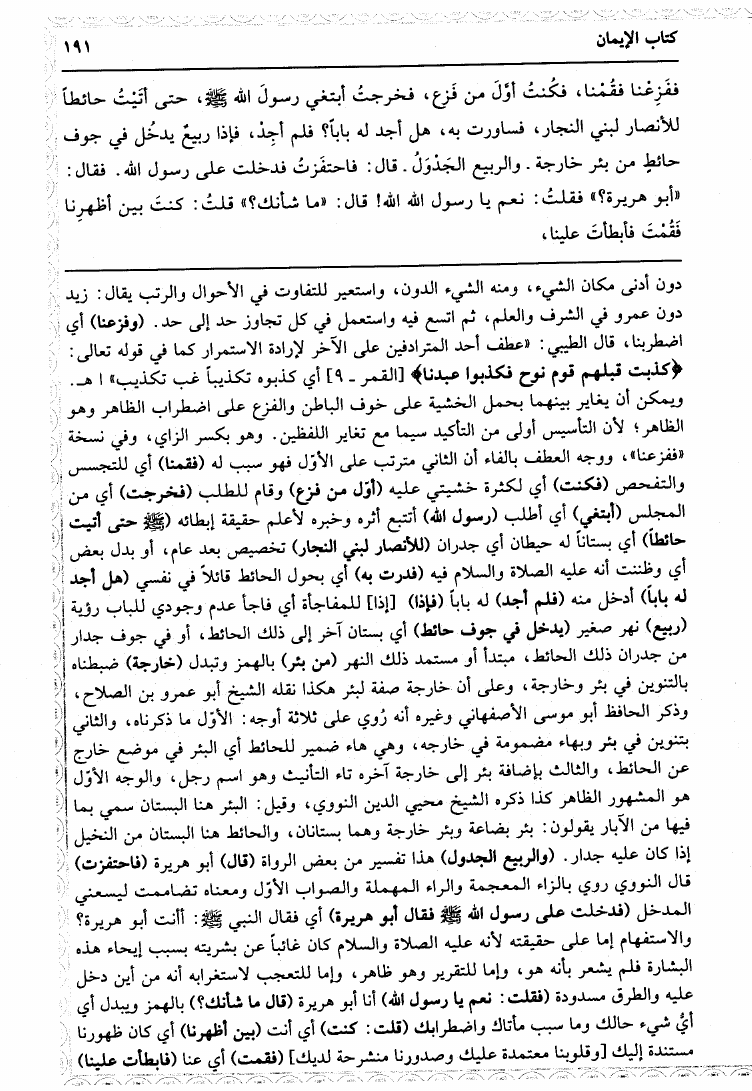 كتاب الإيمان ١٩١
ففَزِعْنا فقُمْنا، فكُنتُ أوَّلَ من فَزِع، فخرجتُ أبتغي رسولَ الله ﷺ، حتى أتَيْتُ حائطاً
للأنصار لبني النجار، فساورت به، هل أجد له باباً؟ فلم أجِدْ، فإذا ربيعٌ يدخُل في جوف
حائطٍ من بئر خارجة. والربيع الجَدْوَلُ. قال: فاحتفَزتُ فدخلت على رسول الله. فقال:
«أبو هريرة؟» فقلتُ: نعم يا رسول الله الله! قال: «ما شأنك؟» قلتُ: كنتَ بين أظهرِنا
فَقُمْتَ فأبطأتَ علينا،
دون أدنى مكان الشيء، ومنه الشيء الدون، واستعير للتفاوت في الأحوال والرتب يقال: زيد
دون عمرو في الشرف والعلم، ثم اتسع فيه واستعمل في كل تجاوز حد إلى حد. (وفزعنا) أي
اضطربنا، قال الطيبي: «عطف أحد المترادفين على الآخر لإرادة الاستمرار كما في قوله تعالى:
﴿كذبت قبلهم قوم نوح فكذبوا عبدنا﴾ [القمر ـ ٩] أي كذبوه تكذيباً غب تكذيب» ا هـ.
ويمكن أن يغاير بينهما بحمل الخشية على خوف الباطن والفزع على اضطراب الظاهر وهو
الظاهر؛ لأن التأسيس أولى من التأكيد سيما مع تغاير اللفظين. وهو بكسر الزاي، وفي نسخة
«ففزعنا»، ووجه العطف بالفاء أن الثاني مترتب على الأوّل فهو سبب له (فقمنا) أي للتجسس
والتفحص (فكنت) أي لكثرة خشيتي عليه (أوّل من فزع) وقام للطلب (فخرجت) أي من
المجلس (أبتغي) أي أطلب (رسول الله) أتتبع أثره وخبره لأعلم حقيقة إبطائه (ﷺ حتى أتيت
حائطاً) أي بستاناً له حيطان أي جدران (للأنصار لبني النجار) تخصيص بعد عام، أو بدل بعض
أي وظننت أنه عليه الصلاة والسلام فيه (فدرت به) أي بحول الحائط قائلاً في نفسي (هل أجد
له باباً) أدخل منه (فلم أجد) له باباً (فإذا) [إذا] للمفاجأة أي فاجأ عدم وجودي للباب رؤية
(ربيع) نهر صغير (يدخل في جوف حائط) أي بستان آخر إلى ذلك الحائط، أو في جوف جدار
من جدران ذلك الحائط، مبتدأ أو مستمد ذلك النهر (من بئر) بالهمز وتبدل (خارجة) ضبطناه
بالتنوين في بئر وخارجة، وعلى أن خارجة صفة لبئر هكذا نقله الشيخ أبو عمرو بن الصلاح،
وذكر الحافظ أبو موسى الأصفهاني وغيره أنه رُوي على ثلاثة أوجه: الأوّل ما ذكرناه، والثاني
بتنوين في بئر وبهاء مضمومة في خارجه، وهي هاء ضمير للحائط أي البئر في موضع خارج
عن الحائط، والثالث بإضافة بئر إلى خارجة آخره تاء التأنيث وهو اسم رجل، والوجه الأوّل
هو المشهور الظاهر كذا ذكره الشيخ محيي الدين النووي، وقيل: البئر هنا البستان سمي بما
فيها من الآبار يقولون: بئر بضاعة وبئر خارجة وهما بستانان، والحائط هنا البستان من النخيل
إذا كان عليه جدار. (والربيع الجدول) هذا تفسير من بعض الرواة (قال) أبو هريرة (فاحتفزت)
قال النووي روي بالزاء المعجمة والراء المهملة والصواب الأوّل ومعناه تضاممت ليسعني
المدخل (فدخلت على رسول الله ﷺ فقال أبو هريرة) أي فقال النبي ﷺ: أأنت أبو هريرة؟
والاستفهام إما على حقيقته لأنه عليه الصلاة والسلام كان غائباً عن بشريته بسبب إيحاء هذه
البشارة فلم يشعر بأنه هو، وإما للتقرير وهو ظاهر، وإما للتعجب لاستغرابه أنه من أين دخل
عليه والطرق مسدودة (فقلت: نعم يا رسول الله) أنا أبو هريرة (قال ما شأنك؟) بالهمز ويبدل أي
أيُّ شيء حالك وما سبب مأتاك واضطرابك (قلت: كنت) أي أنت (بين أظهرنا) أي كان ظهورنا
مستندة إليك [وقلوبنا معتمدة عليك وصدورنا منشرحة لديك] (فقمت) أي عنا (فابطأت علينا)